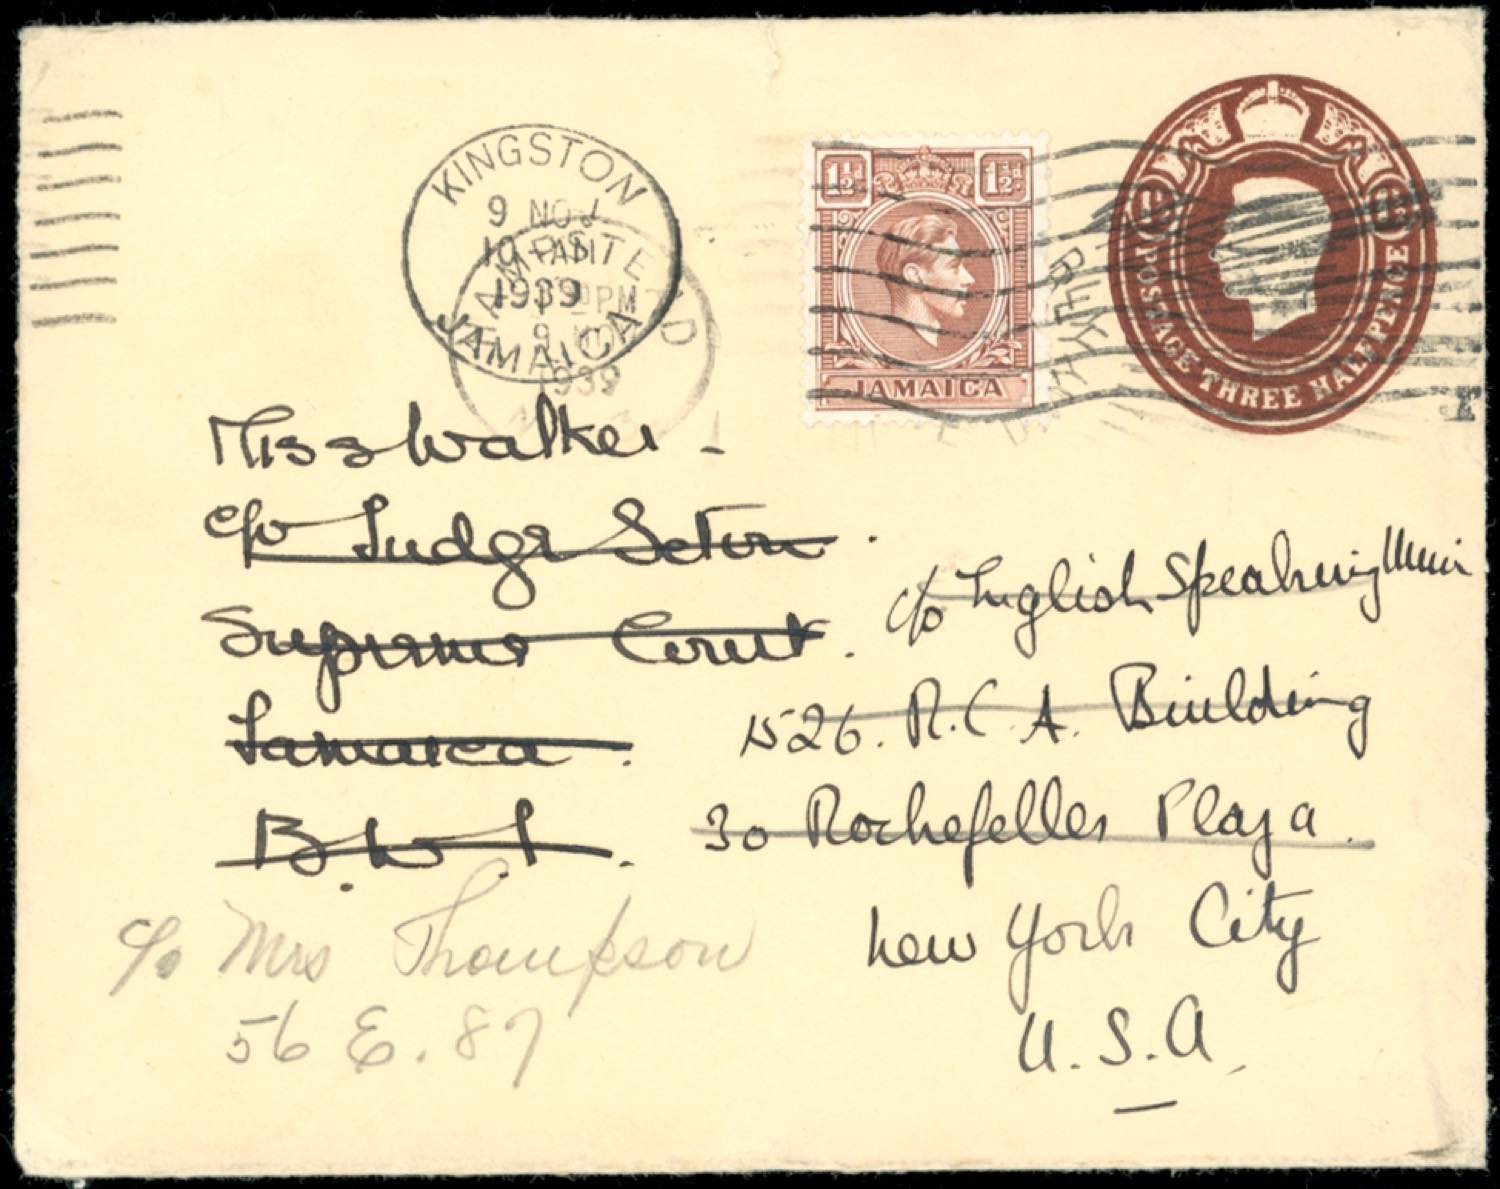 KINGSTON
9 NOV
10 AM
1939
JAMAICA
PM
9 NO
1939
1½d 1½d
JAMAICA
POSTAGE THREE HALFPENCE
Miss Walker -
c/o Judge
Supreme Court.
Jamaica.
B.W.I.
c/o English Speaking Union
1526. R.C.A. Building
30 Rockefeller Plaza.
New York City
U.S.A.
c/o Mrs Thompson
56 E. 87